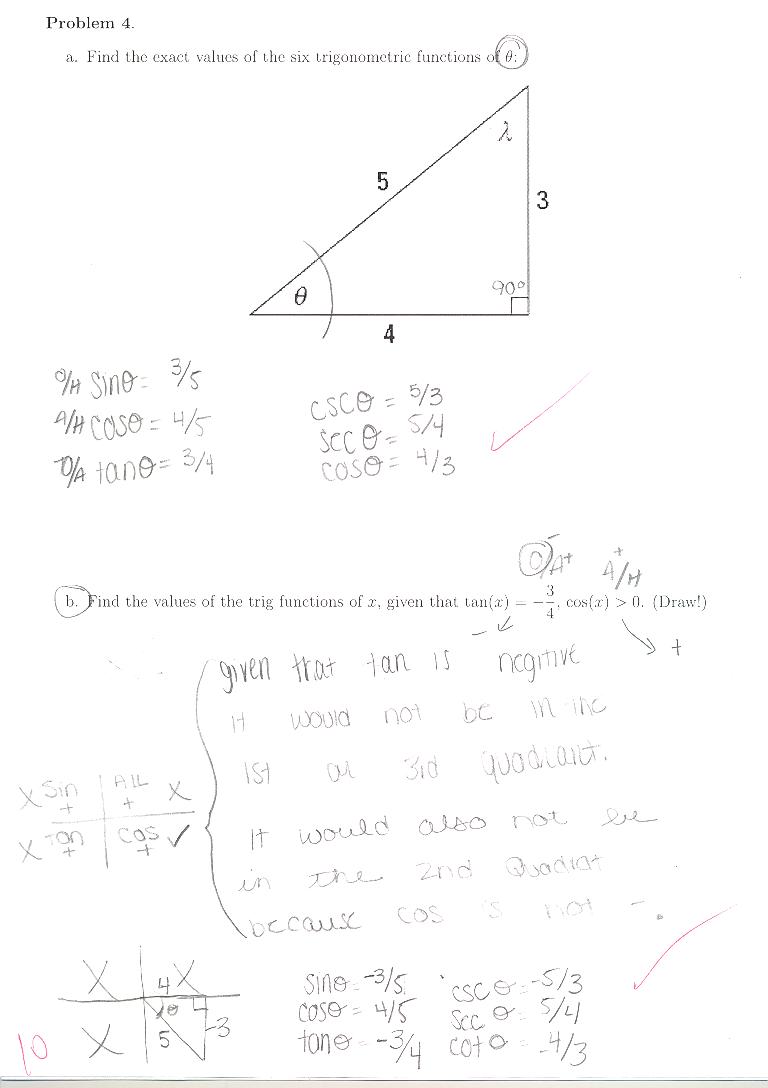 Problem 4.
a. Find the exact values of the six trigonometric functions of θ:
λ
5
3
θ
90°
4
O/H sinθ = 3/5
A/H cosθ = 4/5
O/A tanθ = 3/4
cscθ = 5/3
secθ = 5/4
cosθ = 4/3
O/A+ -
+ A/H
b. Find the values of the trig functions of x, given that tan(x) = -3/4, cos(x) > 0. (Draw!)
-
+
given that tan is negitive
it would not be in the
1st or 3rd quadrant.
It would also not be
in the 2nd Quadrat
because cos is not -.
X Sin + ALL + X
X Tan + cos + ✓
X 4 X
X θ 5 -3
sinθ = -3/5
cosθ = 4/5
tanθ = -3/4
cscθ = -5/3
sec θ = 5/4
cot θ = -4/3
10